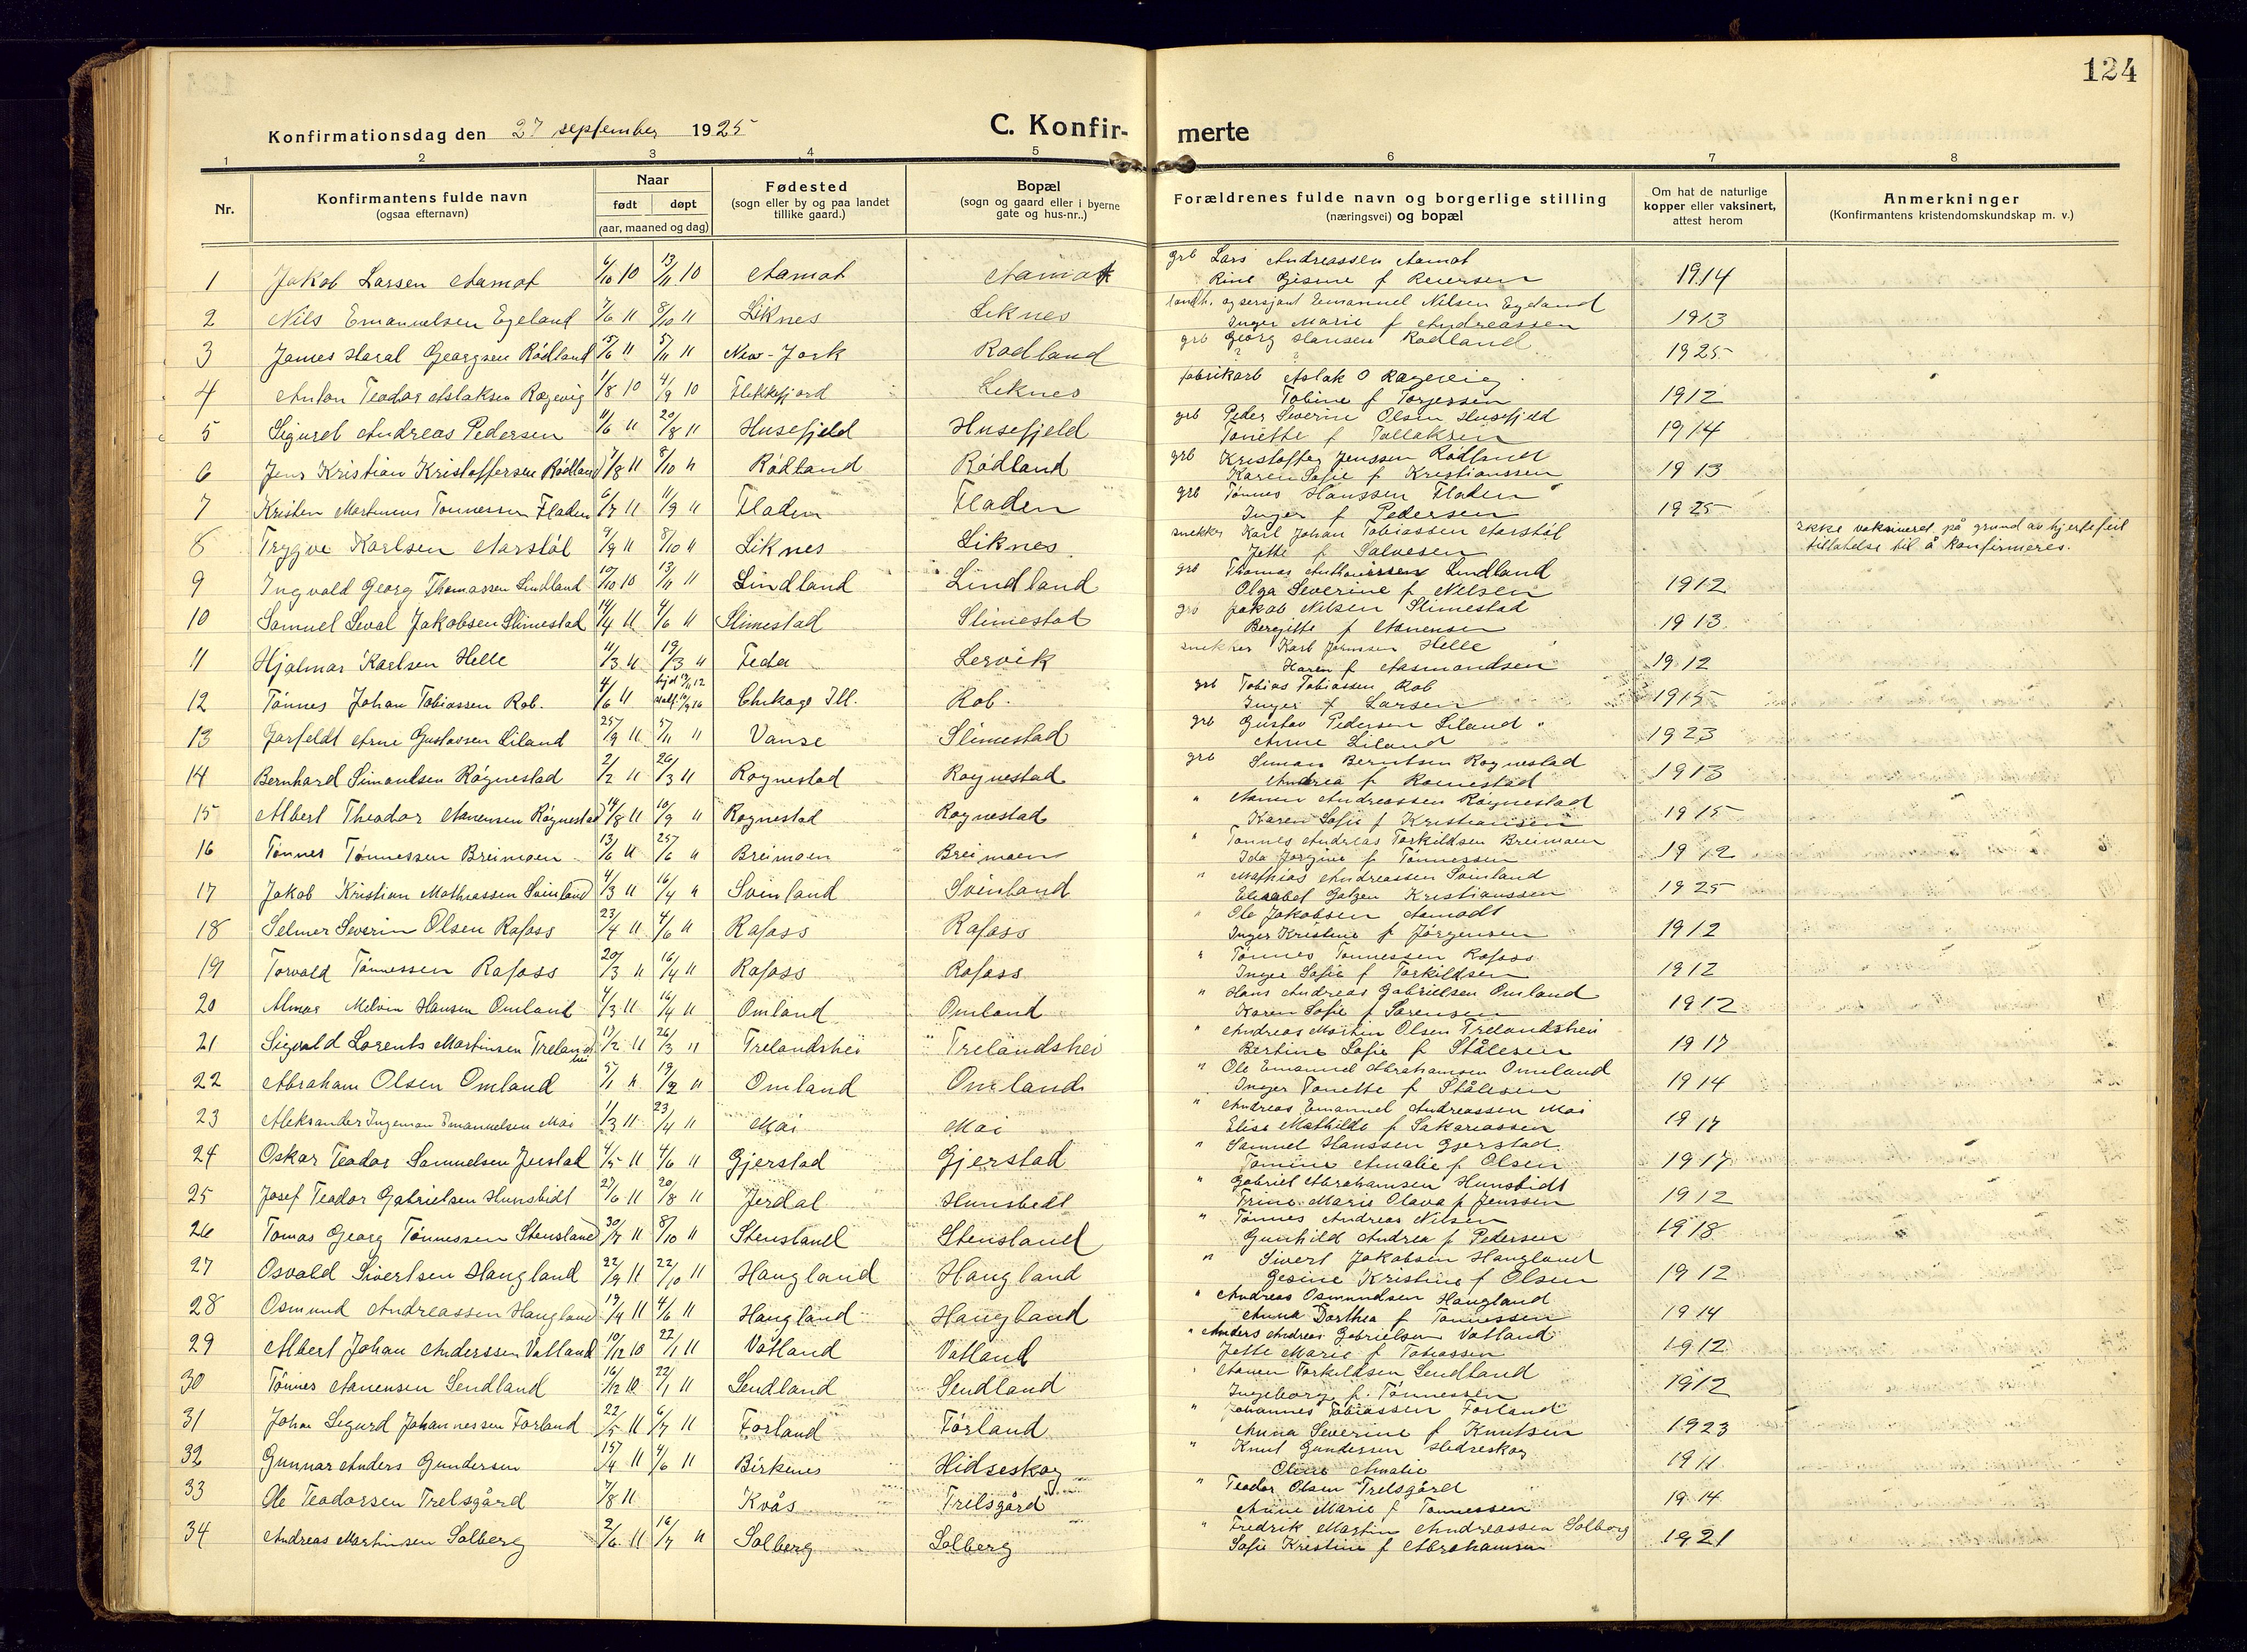 124
Konfirmationsdag den 27 september 1925
C. Konfir-merte
1 2 3 4 5 6 7 8
Nr.
Konfirmantens fulde navn
(ogsaa efternavn)
Naar
født døpt
(aar, maaned og dag)
Fødested
(sogn eller by og paa landet
tillike gaard.)
Bopæl
(sogn og gaard eller i byerne
gate og hus-nr..)
Forældrenes fulde navn og borgerlige stilling
(næringsvei) og bopæl
Om hat de naturlige
kopper eller vaksinert,
attest herom
Anmerkninger
(Konfirmantens kristendomskundskap m. v.)
1 Jakob Larsen Aamot 6/10 10 13/11 10 Aamot Aamot grb Lars Andreassen Aamot
Rine Gisine f Reiersen 1914
2 Nils Emanuelsen Egeland 7/6 11 8/10 11 Liknes Liknes landh. og sersjant Emanuel Nilsen Egeland
Inger Marie f Andreassen 1913
3 James Haral Georgsen Rødland 11 5/11 11 New-York Rødland grb Georg Hansen Rødland
? ? 1925
4 Anton Teodor Aslaksen Røgevig 1/8 10 4/9 10 Flekkefjord Liknes fabrikarb Aslak O Røgeveig
Tobine f Torjessen 1912
5 Sigurd Andreas Pedersen 11/6 11 20/8 11 Husefjeld Husefjeld grb Peder Severin Olsen Husefjeld
Tonette f Tallaksen 1914
6 Jens Kristian Kristoffersen Rødland 7/8 11 8/10 11 Rødland Rødland grb Kristoffer Jenssen Rødland
Karen Sofie f Kristianssen 1913
7 Kristen Martinius Tønnessen Fladen 6/7 11 11/9 11 Fladen Fladen grb Tønnes Hanssen Fladen
Inger f Pedersen 1925
8 Trygve Karlsen Aarstøl 9/9 11 8/10 11 Liknes Liknes snekker Karl Johan Tobiassen Aarstøl
Jette f Salvesen Ikke vaksinert på grund av hjertefeil
tillatelse til å konfirmeres.
9 Ingvald Georg Thomassen Lindland 10/10 10 13/11 11 Lindland Lindland grb Thomas Lindland
Olga Severine f Nilsen 1912
10 Samuel Seval Jakobsen Slimestad 14/4 11 4/6 11 Slimestad Slimestad grb Jakob Nilsen Slimestad
Bergitte f Aanensen 1913
11 Hjalmar Karlsen Helle 11/3 11 19/3 11 Feda Lervik snekker Karl Helle
Karen f Aasmundsen 1912
12 Tønnes Johan Tobiassen Rob. 4/6 11 Chikago Ill. Rob. grb Tobias Tobiassen Rob
Inger f Larsen 1915
13 Garfeldt Arne Gustavsen Liland 25/9 11 5/11 11 Vanse Slimestad grb Gustav Pedersen Liland
Anne Liland 1923
14 Bernhard Simonlsen Røgnestad 2/2 11 26/3 11 Rognestad Rognestad grb Simon Berntsen Rognestad
Andrea f Romestad 1913
15 Albert Theodor Aanensen Røgnestad 14/8 11 10/9 11 Rognestad Rognestad " Aanen Andreassen Røgnestad
Karen Sofie f Kristiansen 1915
16 Tønnes Tønnessen Breimoen 13/6 11 25/6 11 Breimoen Breimoen " Tønnes Andreas Torkildsen Breimoen
Ida Jorgine f Tønnessen 1912
17 Jakob Kristian Mathiassen Svinland 4/3 11 16/4 11 Svinland Svinland " Mathias Andreassen Svinland
Elisabet Kristianssen 1925
18 Selmer Severin Olsen Rafoss 23/4 11 4/6 11 Rafoss Rafoss " Ole Jakobsen Aamodt
Inger Kristine f Jørgensen 1912
19 Torvald Tønnessen Rafoss 20/3 11 16/4 11 Rafoss Rafoss " Tønnes Tønnessen Rafoss
Inger Sofie f Torkildsen 1912
20 Almar Melvin Hansen Omland 4/3 11 16/4 11 Omland Omland " Hans Andreas Gabrielsen Omland
Karen Sofie f Sørensen 1912
21 Sigvald Lorents Martinsen Trelandshei 17/2 11 26/3 11 Trelandshei Trelandshei " Andreas Martin Olsen Trelandshei
Bertine Sofie f Stålesen 1917
22 Abraham Olsen Omland 5/1 11 19/2 11 Omland Omland " Ole Emanuel Abrahamsen Omland
Inger Tonette f Stålesen 1914
23 Aleksander Ingeman Emanuelsen Moi 1/3 11 23/4 11 Moi Moi " Andreas Emanuel Andreassen Moi
Elise Mathilde f Sakariassen 1917
24 Oskar Teodor Samuelsen Jerstad 4/5 11 4/6 11 Gjerstad Gjerstad " Samuel Hanssen Gjerstad
Tomine Amalie f Olsen 1917
25 Josef Teodor Gabrielsen Hunsbidt 27/6 11 20/8 11 Jerdal Hunsbedt " Gabriel Abrahamsen Hunsbidt
Trine Marie Olava f Jenssen 1912
26 Tomas Georg Tønnessen Stensland 30/7 11 8/10 11 Stensland Stensland " Tønnes Andreas Nilsen
Gunhild Andrea f Pedersen 1918
27 Osvald Sivertsen Haugland 22/9 11 22/10 11 Haugland Haugland " Sivert Jakobsen Haugland
Gesine Kristine f Olsen 1912
28 Osmund Andreassen Haugland 19/4 11 4/6 11 Haugland Haugland " Andreas Osmundsen Haugland
Anna Dorthea f Tønnessen 1914
29 Albert Johan Anderssen Vatland 10/12 10 22/1 11 Vatland Vatland " Anders Andreas Gabrielsen Vatland
Jette Marie f Tobiassen 1912
30 Tønnes Aanensen Sendland 16/12 10 22/1 11 Sendland Sendland " Aanen Torkildsen Sendland
Ingeborg f. Tønnessen 1912
31 Johan Sigurd Johannessen Forland 22/5 11 6/7 11 Forland Førland " Johannes Tobiassen Forland
Anna Severine f Knutsen 1923
32 Gunnar Anders Gundersen 15/4 11 4/6 11 Birkenes Hidseskog " Knut Gundersen Hedreskog
Oline Amalie 1911
33 Ole Teodorsen Trelsgård 7/8 11 Kvås Trelsgård " Teodor Olsen Trelsgård
Anne Marie f Tønnessen 1914
34 Andreas Martinsen Solberg 2/6 11 16/7 11 Solberg Solberg " Fredrik Martin Andreassen Solberg
Sofie Kristine f Abrahamsen 1921